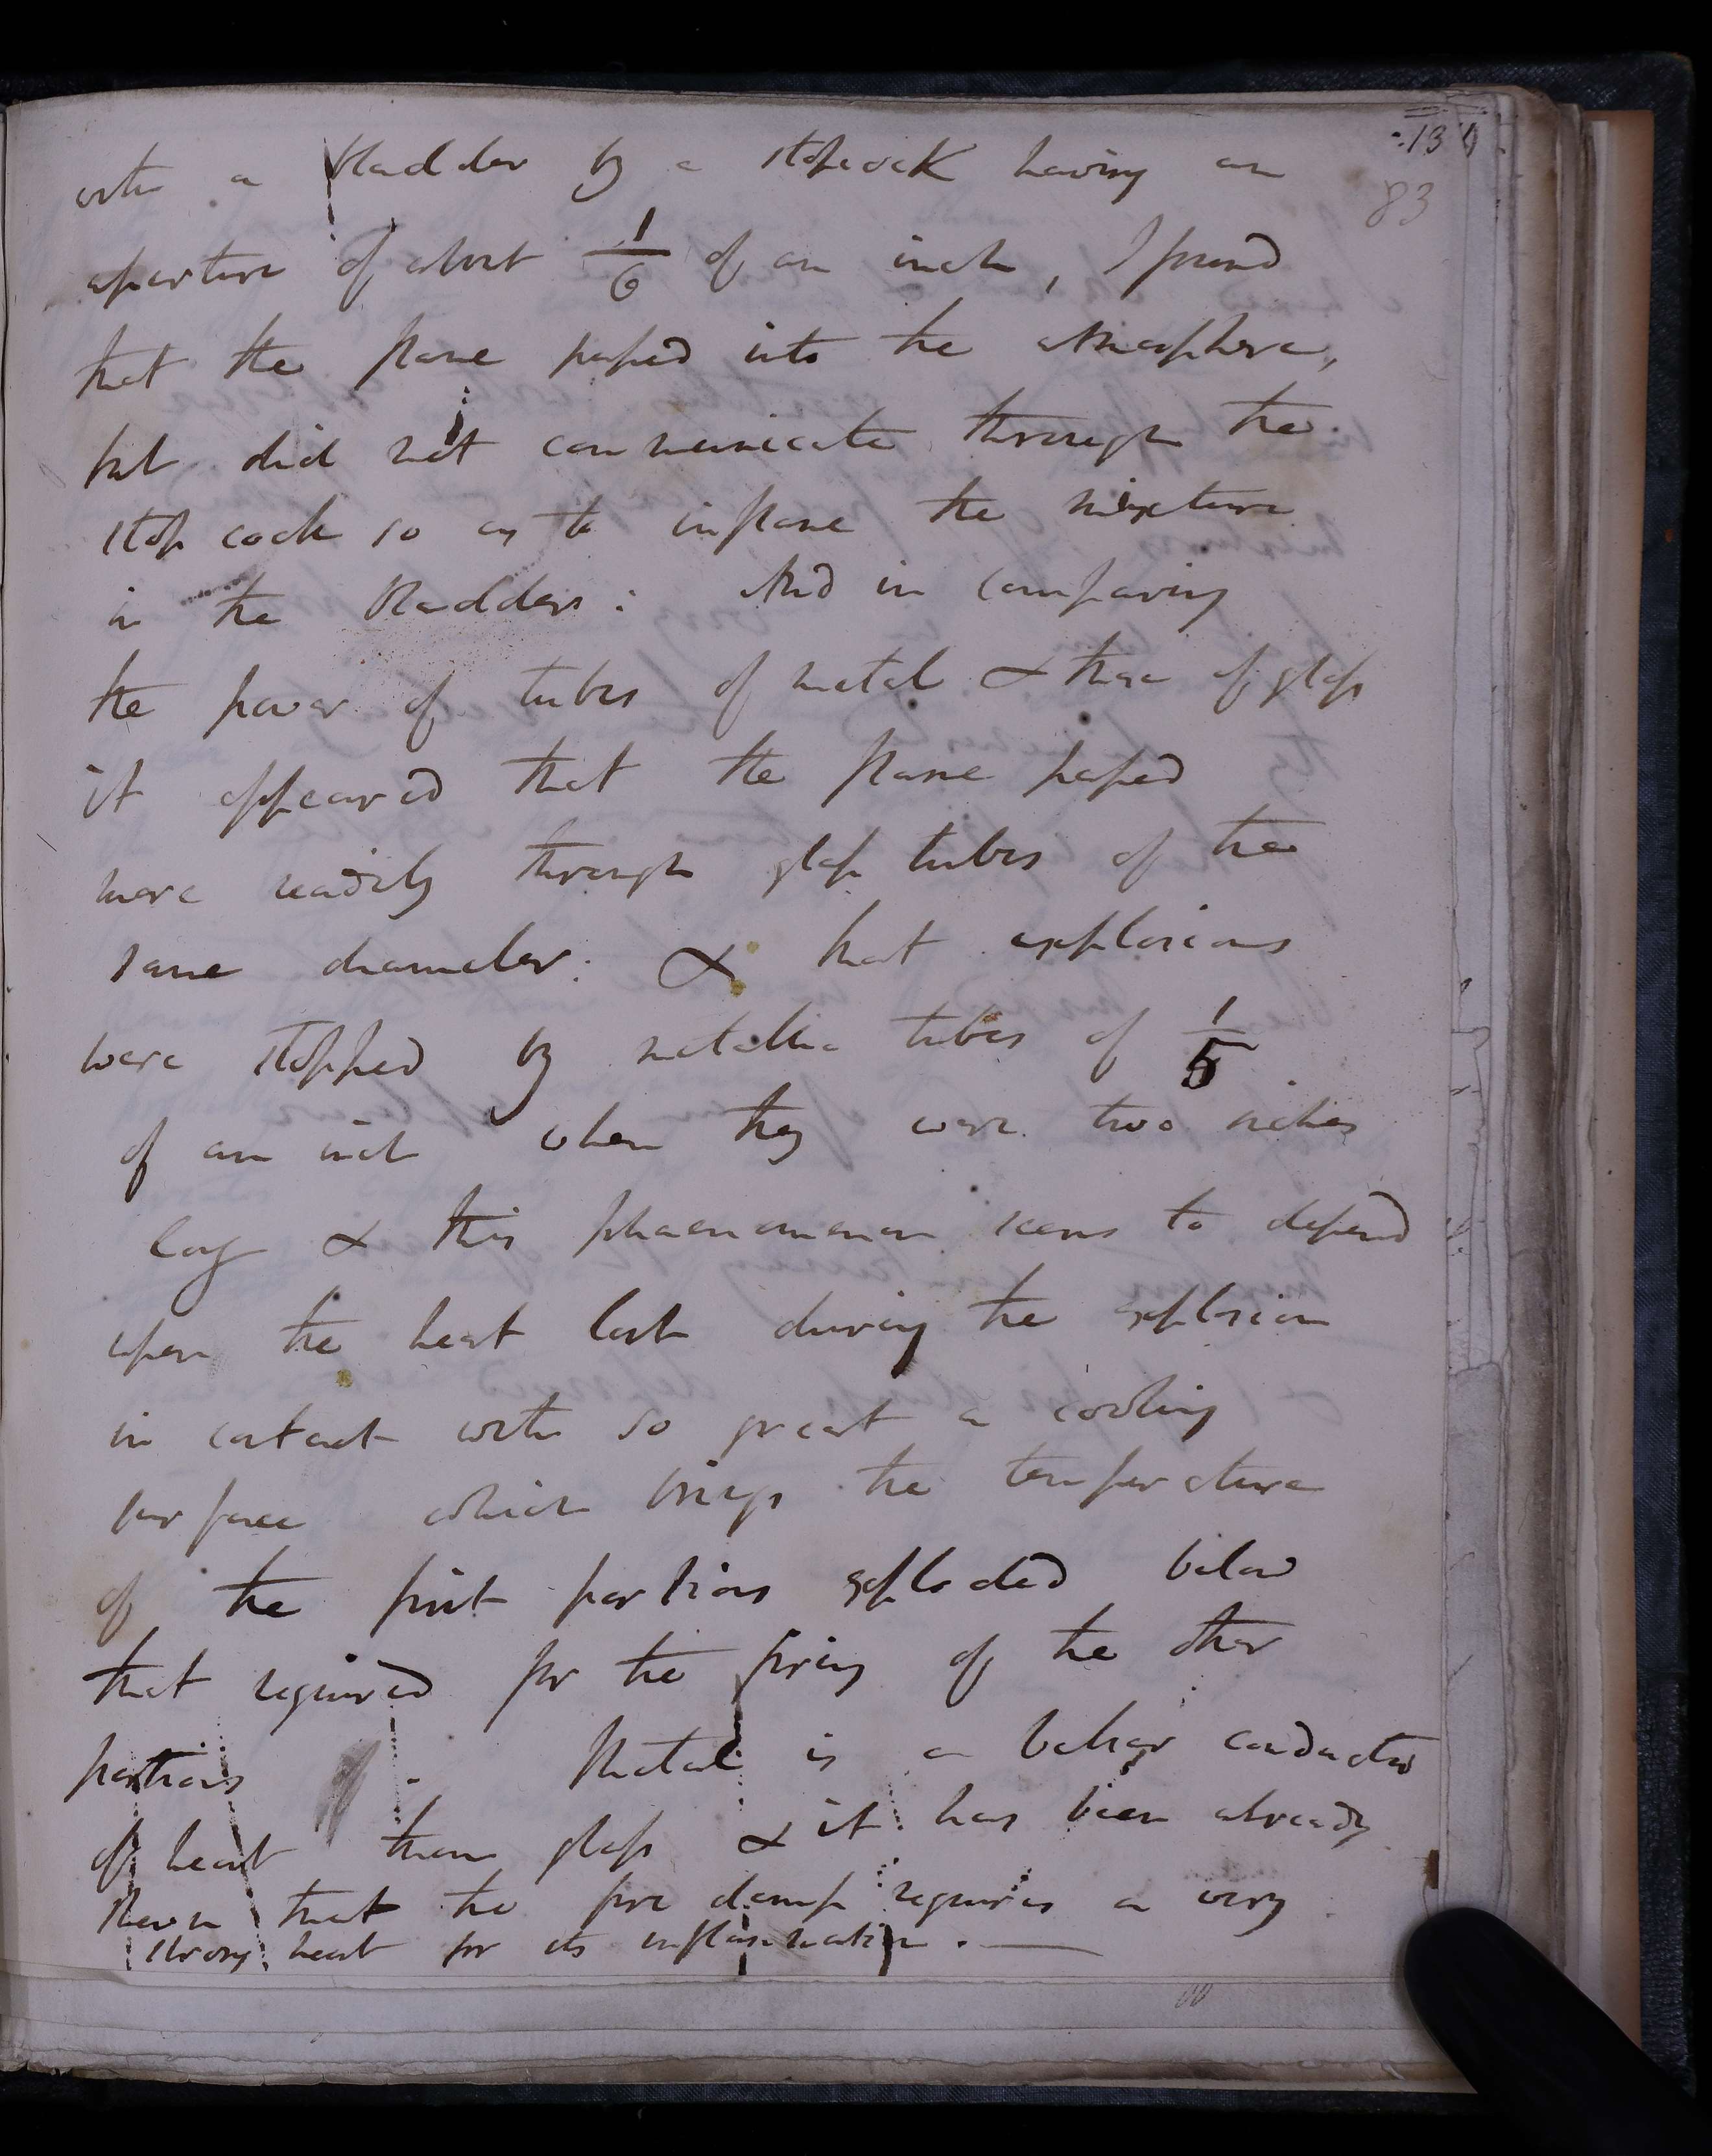 134
83
with a bladder by a stopcock having an
aperture of about 1/6 of an inch, I found
that the flame passed into the atmosphere,
but did not communicate through the
stop cock so as to inflame the mixture
in the bladder: And in comparing
the power of tubes of metal & those of glass
it appeared that the flame passed
more readily through glass tubes of the
same diameter: & that explosions
were stopped by metallic tubes of 1/5
of an inch when they were two inches
long & this phaenomenon seems to depend
upon the heat lost during the explosion
in contact with so great a cooling
surface which brings the temperature
of the first portions exploded below
that required for the firing of the other
portions. Metal is a better conductor
of heat than glass & it has been already
shewn that the fire damp requires a very
strong heat for its inflammation. —